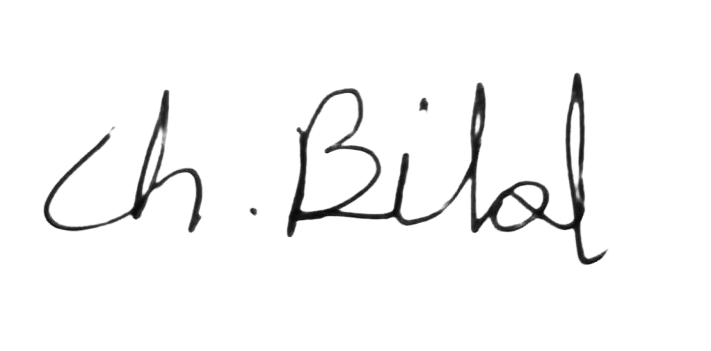 Ch. Bilal